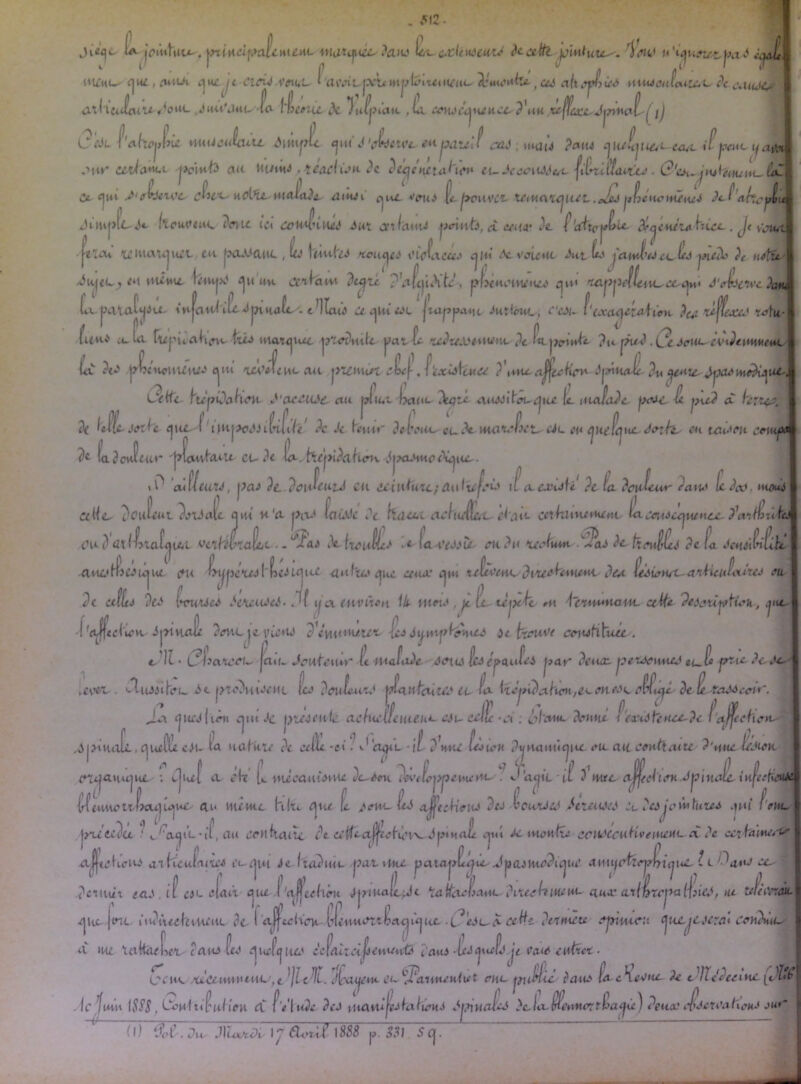 512.
siège la jointure, principalement marquée dans les extenseurs de cette jointure. Vous n'ignorez pas éga
lement que, ainsi que je crois vous l'avoir péremptoirement démontré, ces atrophies musculaires de cause
articulaire sont, suivant la théorie de Vulpian, la conséquence d'un réflexe spinal (1)
C'est l'atrophie musculaire simple qui s'observe en pareil cas; mais dans quelques cas il peut y avoir
sur certains points au moins, réaction de dégénération et secousses fibrillaires. C'est justement là
ce qui s'observe chez notre malade ainsi que vous le pouvez remarquer. Les phénomènes de l'atrophie
simple se trouvent donc ici combinés sur certains points, à ceux de l'atrophie dégénératrice. Je vous
ferai remarquer, en passant, les teintes rouges violacées qui se voient sur les jambes et les pieds de notre
sujet, en même temps qu'un certain degré d'algidité, phénomènes qui rappellent ce qui s'observe dans
la paralysie infantile spinale. Mais ce qui est frappant surtout, c'est l'exagération des réflexes rotu-
liens et la trépidation très marquée produite par le redressement de la pointe du pied. Ce sont évidemment
là des phénomènes qui révèlent au premier chef, l'existence d'une affection spinale du genre spasmodique.
Cette trépidation s'accuse au plus haut degré aussitôt que le malade pose le pied à terre,
de telle sorte que l'impossibilité de se tenir debout et de marcher est en quelque sorte en raison
de la douleur plantaire et de la trépidation spasmodique.
D'ailleurs, pas de douleurs en ceinture; autrefois il a existé de la douleur dans le dos, mais
cette douleur dorsale qui n'a pas laissé de traces actuelles était certainement la conséquence d'arthrites
ou d'arthralgies vertébrales. Pas de troubles de la vessie ou du rectum. Pas de troubles de la sensibilité
anesthésique ou hyperesthésique autres que ceux qui relèvent directement des lésions articulaires ou
de celles des bourses séreuses. Il y a environ 18 mois, je le répète en terminant cette description, que
l'affection spinale dont je viens d'énumérer les symptômes se trouve constituée.
M. Charcot fait soutenir le malade sous les épaules par deux personnes et le prie de se
lever. Aussitôt se produisent les douleurs plantaires et la trépidation, et on est obligé de le rasseoir.
La question qui se présente actuellement est celle-ci: étant donné l'existence de l'affection
spinale, quelle est la nature de celle-ci? S'agit-il d'une lésion dynamique ou au contraire d'une lésion
organique? Quel a été le mécanisme de son développement? S'agit-il d'une affection spinale infectieuse
blennorrhagique au même titre que le sont les affections des bourses séreuses et des jointures qui l'ont
précédée? S'agit-il, au contraire de cette affection spinale qui se montre consécutivement à de certaines
affections articulaires et qui se traduit par une paraplégie spasmodique amyotrophique? Dans ce
dernier cas, il est clair que l'affection spinale, se rattachant directement aux arthropathies, ne relèverait
que fort indirectement de l'affection blennorrhagique. C'est à cette dernière opinion que je serai conduit
à me rattacher dans les quelques éclaircissements dans lesquels je vais entrer.
Tout récemment, M. M. Hayem et Parmentier ont publié dans la Revue de Médecine (N°
de Juin 1888, Contribution à l'étude des manifestations spinales de la blennorrhagie) deux observations sur
(1) Pol. du Mardi 17 Avril 1888 p. 331 Sq.